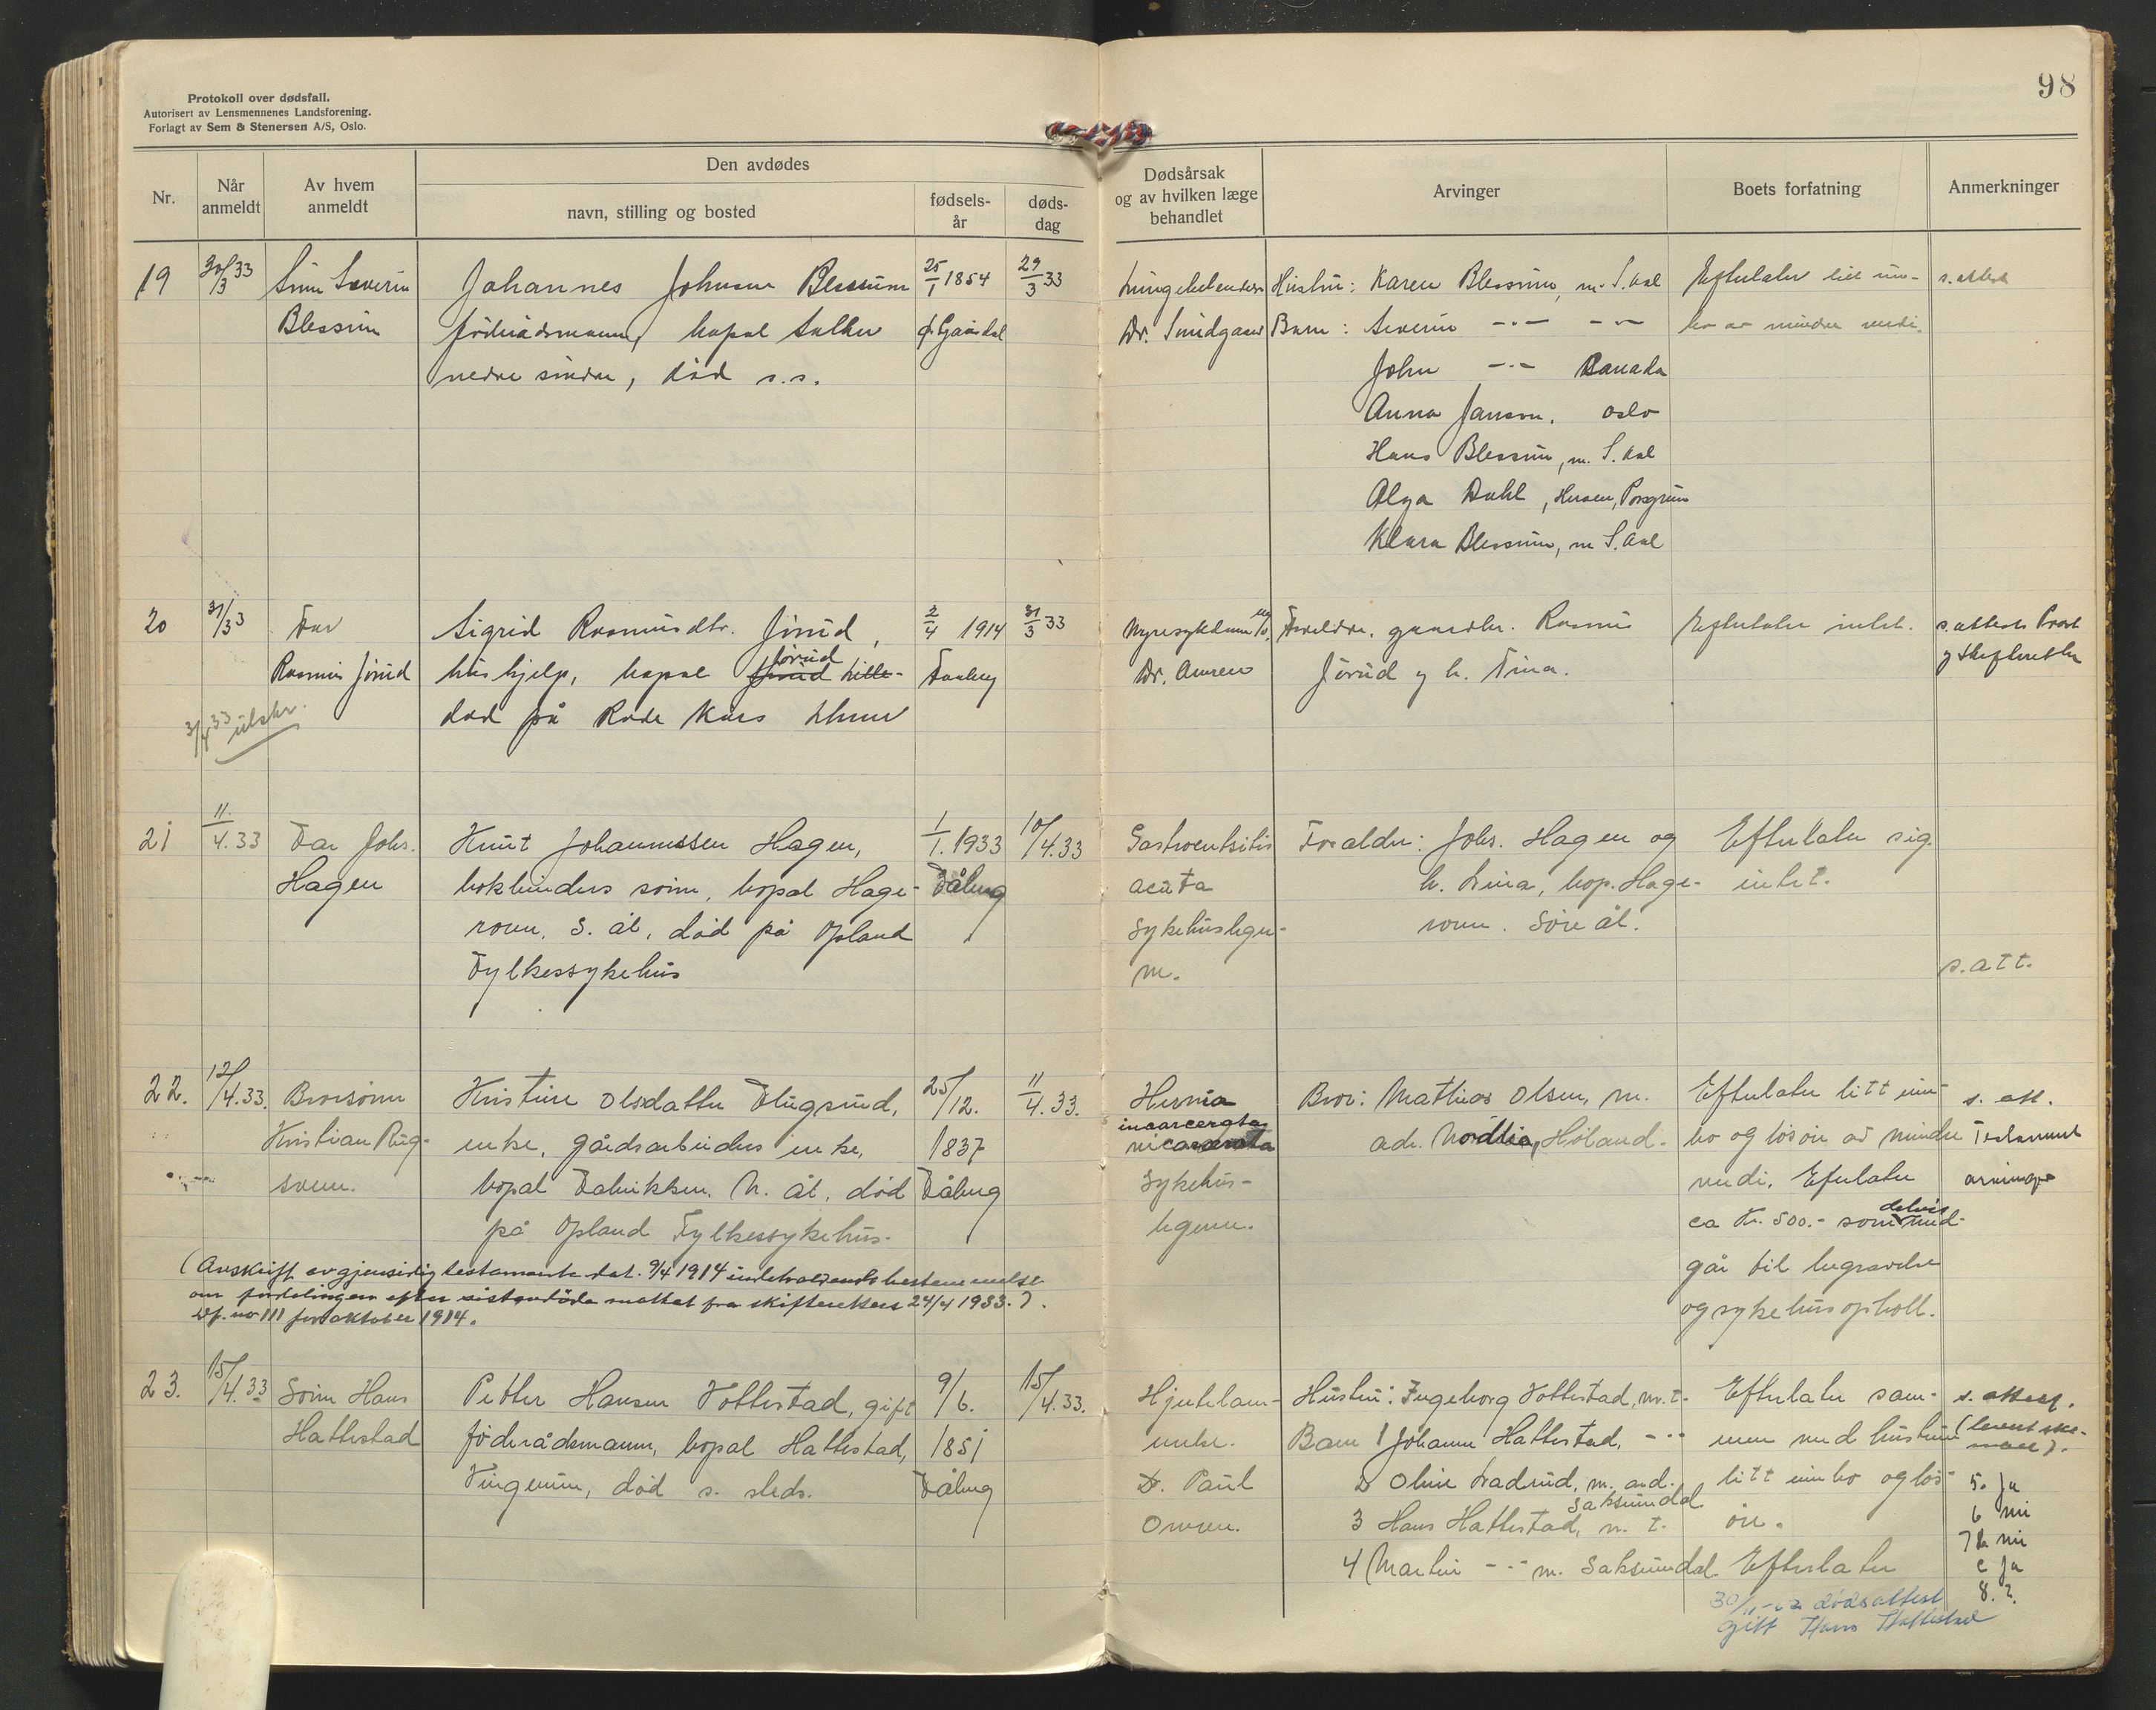 98
Protokoll over dødsfall.
Autorisert av Lensmennenes Landsforening.
Forlagt av Sem & Stenersen A/S, Oslo.
Nr.
Når anmeldt
Av hvem anmeldt
Den avdødes
navn, stilling og bosted
fødsels-år
døds-dag
Dødsårsak og av hvilken læge behandlet
Arvinger
Boets forfatning
Anmerkninger
19
30/3 33
Severin
Blessum
Johannes Johnsen Blessum
föderådsmann, bopæl
nedre søndre, död s.s.
25/1 1854
29/3 33
Lungebetendelse
Dr. Smidgaard
Hustru: Karen Blessum, m. S. Aal
Barn: Severin -"- -"-
John -"- Canada
Anna Jansen, Oslo
Hans Blessum, m. S. Aal
Olga Dahl, Porsgrunn
Klara Blessum, m S. Aal
Efterlater litt inn-
bo av mindre verdi.
s. attest
20
31/3 33
Far
Rasmus Jörud
3/4 33 utskr.
Sigrid Rasmusdtr. Jörud,
hushjelp, bopæl Jörud Lille-
död på Röde Kors
2/4 1914
Faaberg
31/3 33
Nyresykdom
Dr. Amren
Foreldre, gaardbr. Rasmus
Jörud og h. Trina.
Efterlater intet.
s. attest
og skifteretten
21
11/4.33
Far Johs.
Hagen
Knut Johannessen Hagen,
bokbinders sönn, bopæl Hage-
roen, S. ål, död på Opland
Fylkessykehus
1/1.1933
Fåberg
10/4.33
Gastroenteritis
acuta
Sykehuslegen
Foreldre: Johs. Hagen og
h. Lina, bop. Hage-
roen. Söre ål.
Efterlater sig
intet.
s. att.
22.
12/4.33.
Brorsönn
Kristian Rug-
sveen.
Kristine Olsdatter Flugsrud,
enke, gårdsarbeiders enke,
bopæl Fabrikken, N. ål, död
på Opland Fylkessykehus.
25/12.
1837
Fåberg
11/4.33.
Hernia
incarcerata
Sykehus-
legene.
Bror: Mathias Olsen, m.
adr. Nordlia, Höland.
Efterlater litt inn-
bo og lösöre av mindre
verdi. Efterlater
ca kr. 500.- som delvis med-
går til begravelse
og sykehusophold.
s. att.
Testament
arving
(Avskrift av gjensidig testamente dat. 9/4 1914 indeholdende bestemmelse
om fordelingen efter sistavdöde mottat fra skifteretten 24/4 1933.).
Df. no 111 for oktober 1914.
23.
15/4.33
Sönn Hans
Hattestad
Petter Hansen Hattestad, gift
föderådsmann, bopæl Hattestad,
Vingrom, död s. steds.
9/6.
1851
Fåberg
15/4.33.
Hjertelam-
melse.
Dr. Paul
Owren.
Hustru: Ingeborg Hattestad, m. t.
Barn 1 Johann Hattestad, -"-
2 Oline Ladrud, m. ad. Saksumdal
3 Hans Hattestad, m. t.
4 Martin -"- m. Saksumdal
Efterlater sam-
men med hustruen
litt innbo og lös-
öre.
Efterlater
s. attest.
5. ja
6 nei
7 b nei
c ja
8. ?
dödsattest
gitt Hans Hattestad